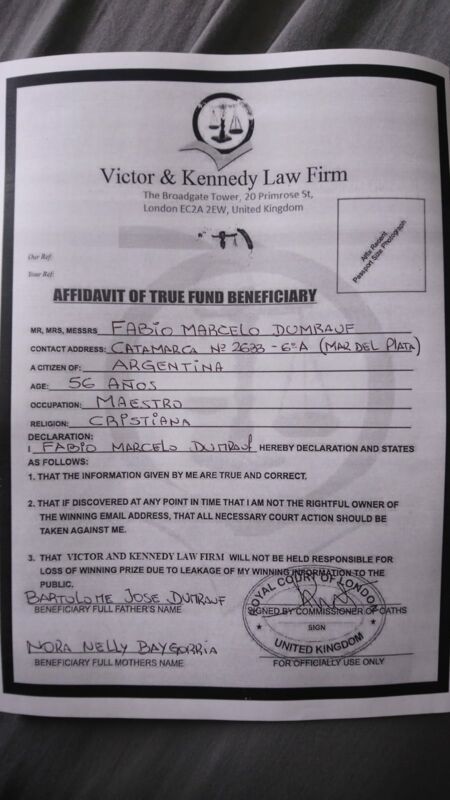 Victor & Kennedy Law Firm
The Broadgate Tower, 20 Primrose St,
London EC2A 2EW, United Kingdom
Affix Recent
Passport Size Photograph
Our Ref:
Your Ref:
AFFIDAVIT OF TRUE FUND BENEFICIARY
MR, MRS, MESSRS FABIO MARCELO DUMRAUF
CONTACT ADDRESS: CATAMARCA Nº 2633 - 6º A (MAR DEL PLATA)
A CITIZEN OF: ARGENTINA
AGE: 56 AÑOS
OCCUPATION: MAESTRO
RELIGION: CRISTIANA
DECLARATION:
I FABIO MARCELO DUMRAUF HEREBY DECLARATION AND STATES
AS FOLLOWS:
1. THAT THE INFORMATION GIVEN BY ME ARE TRUE AND CORRECT.
2. THAT IF DISCOVERED AT ANY POINT IN TIME THAT I AM NOT THE RIGHTFUL OWNER OF
THE WINNING EMAIL ADDRESS, THAT ALL NECESSARY COURT ACTION SHOULD BE
TAKEN AGAINST ME.
3. THAT VICTOR AND KENNEDY LAW FIRM WILL NOT BE HELD RESPONSIBLE FOR
LOSS OF WINNING PRIZE DUE TO LEAKAGE OF MY WINNING INFORMATION TO THE
PUBLIC.
BARTOLOME JOSE DUMRAUF
BENEFICIARY FULL FATHER'S NAME
ROYAL COURT OF LONDON
SIGNED BY COMMISSIONER OF OATHS
SIGN
UNITED KINGDOM
NORA NELLY BAYGORRIA
BENEFICIARY FULL MOTHERS NAME
FOR OFFICIALLY USE ONLY